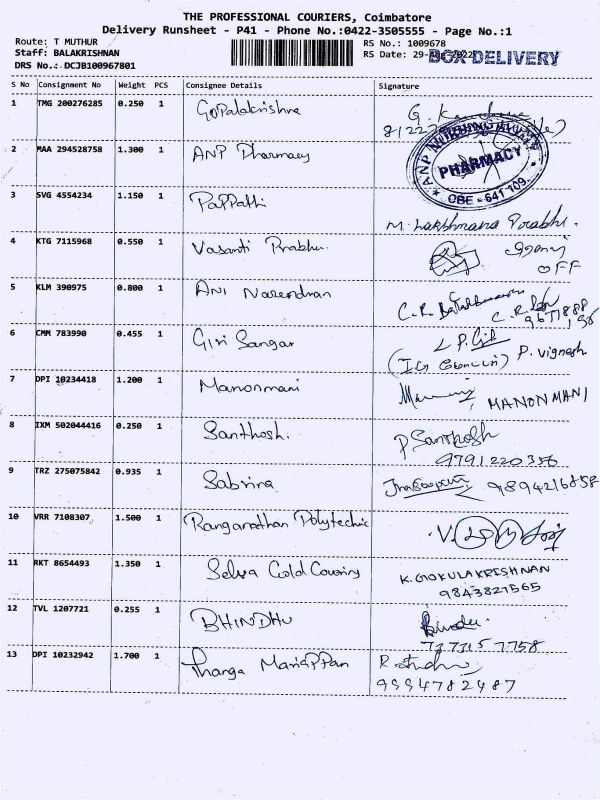 THE PROFESSIONAL COURIERS, Coimbatore
Delivery Runsheet - P41 - Phone No.:0422-3505555 - Page No.:1
Route: T MUTHUR
RS No.: 1009678
Staff: BALAKRISHNAN
RS Date: 29-Aug-2022
BOX DELIVERY
DRS No.: DCJB100967801
S No Consignment No Weight PCS Consignee Details Signature
1 TMG 200276285 0.250 1 Gopalakrishna
2 MAA 294528758 1.300 1 ANP Pharmacy
PHARMACY
OBE - 641 109.
3 SVG 4554234 1.150 1 Pappathi
M. Lakshmana Prabhu.
4 KTG 7115968 0.550 1 Vasanti Prabhu
OFF
5 KLM 390975 0.800 1 ANI Narendran
6 CMM 783990 0.455 1 Giri Sangar
P. Vignesh
7 DPI 10234418 1.200 1 Manonmani
MANONMANI
8 IXM 502044416 0.250 1 Santhosh.
P Santhosh
9791220356
9 TRZ 275075842 0.935 1 Sabrina
9894216858
10 VRR 7108307 1.500 1 Ranganathan Polytechnic
11 RKT 8654493 1.350 1 Selva Gold Covering
K. GOKULAKRISHNAN
9843827565
12 TVL 1207721 0.255 1 BHINDHU
Bindu
7373157758
13 DPI 10232942 1.700 1 Thanga Mariappan
9994782487